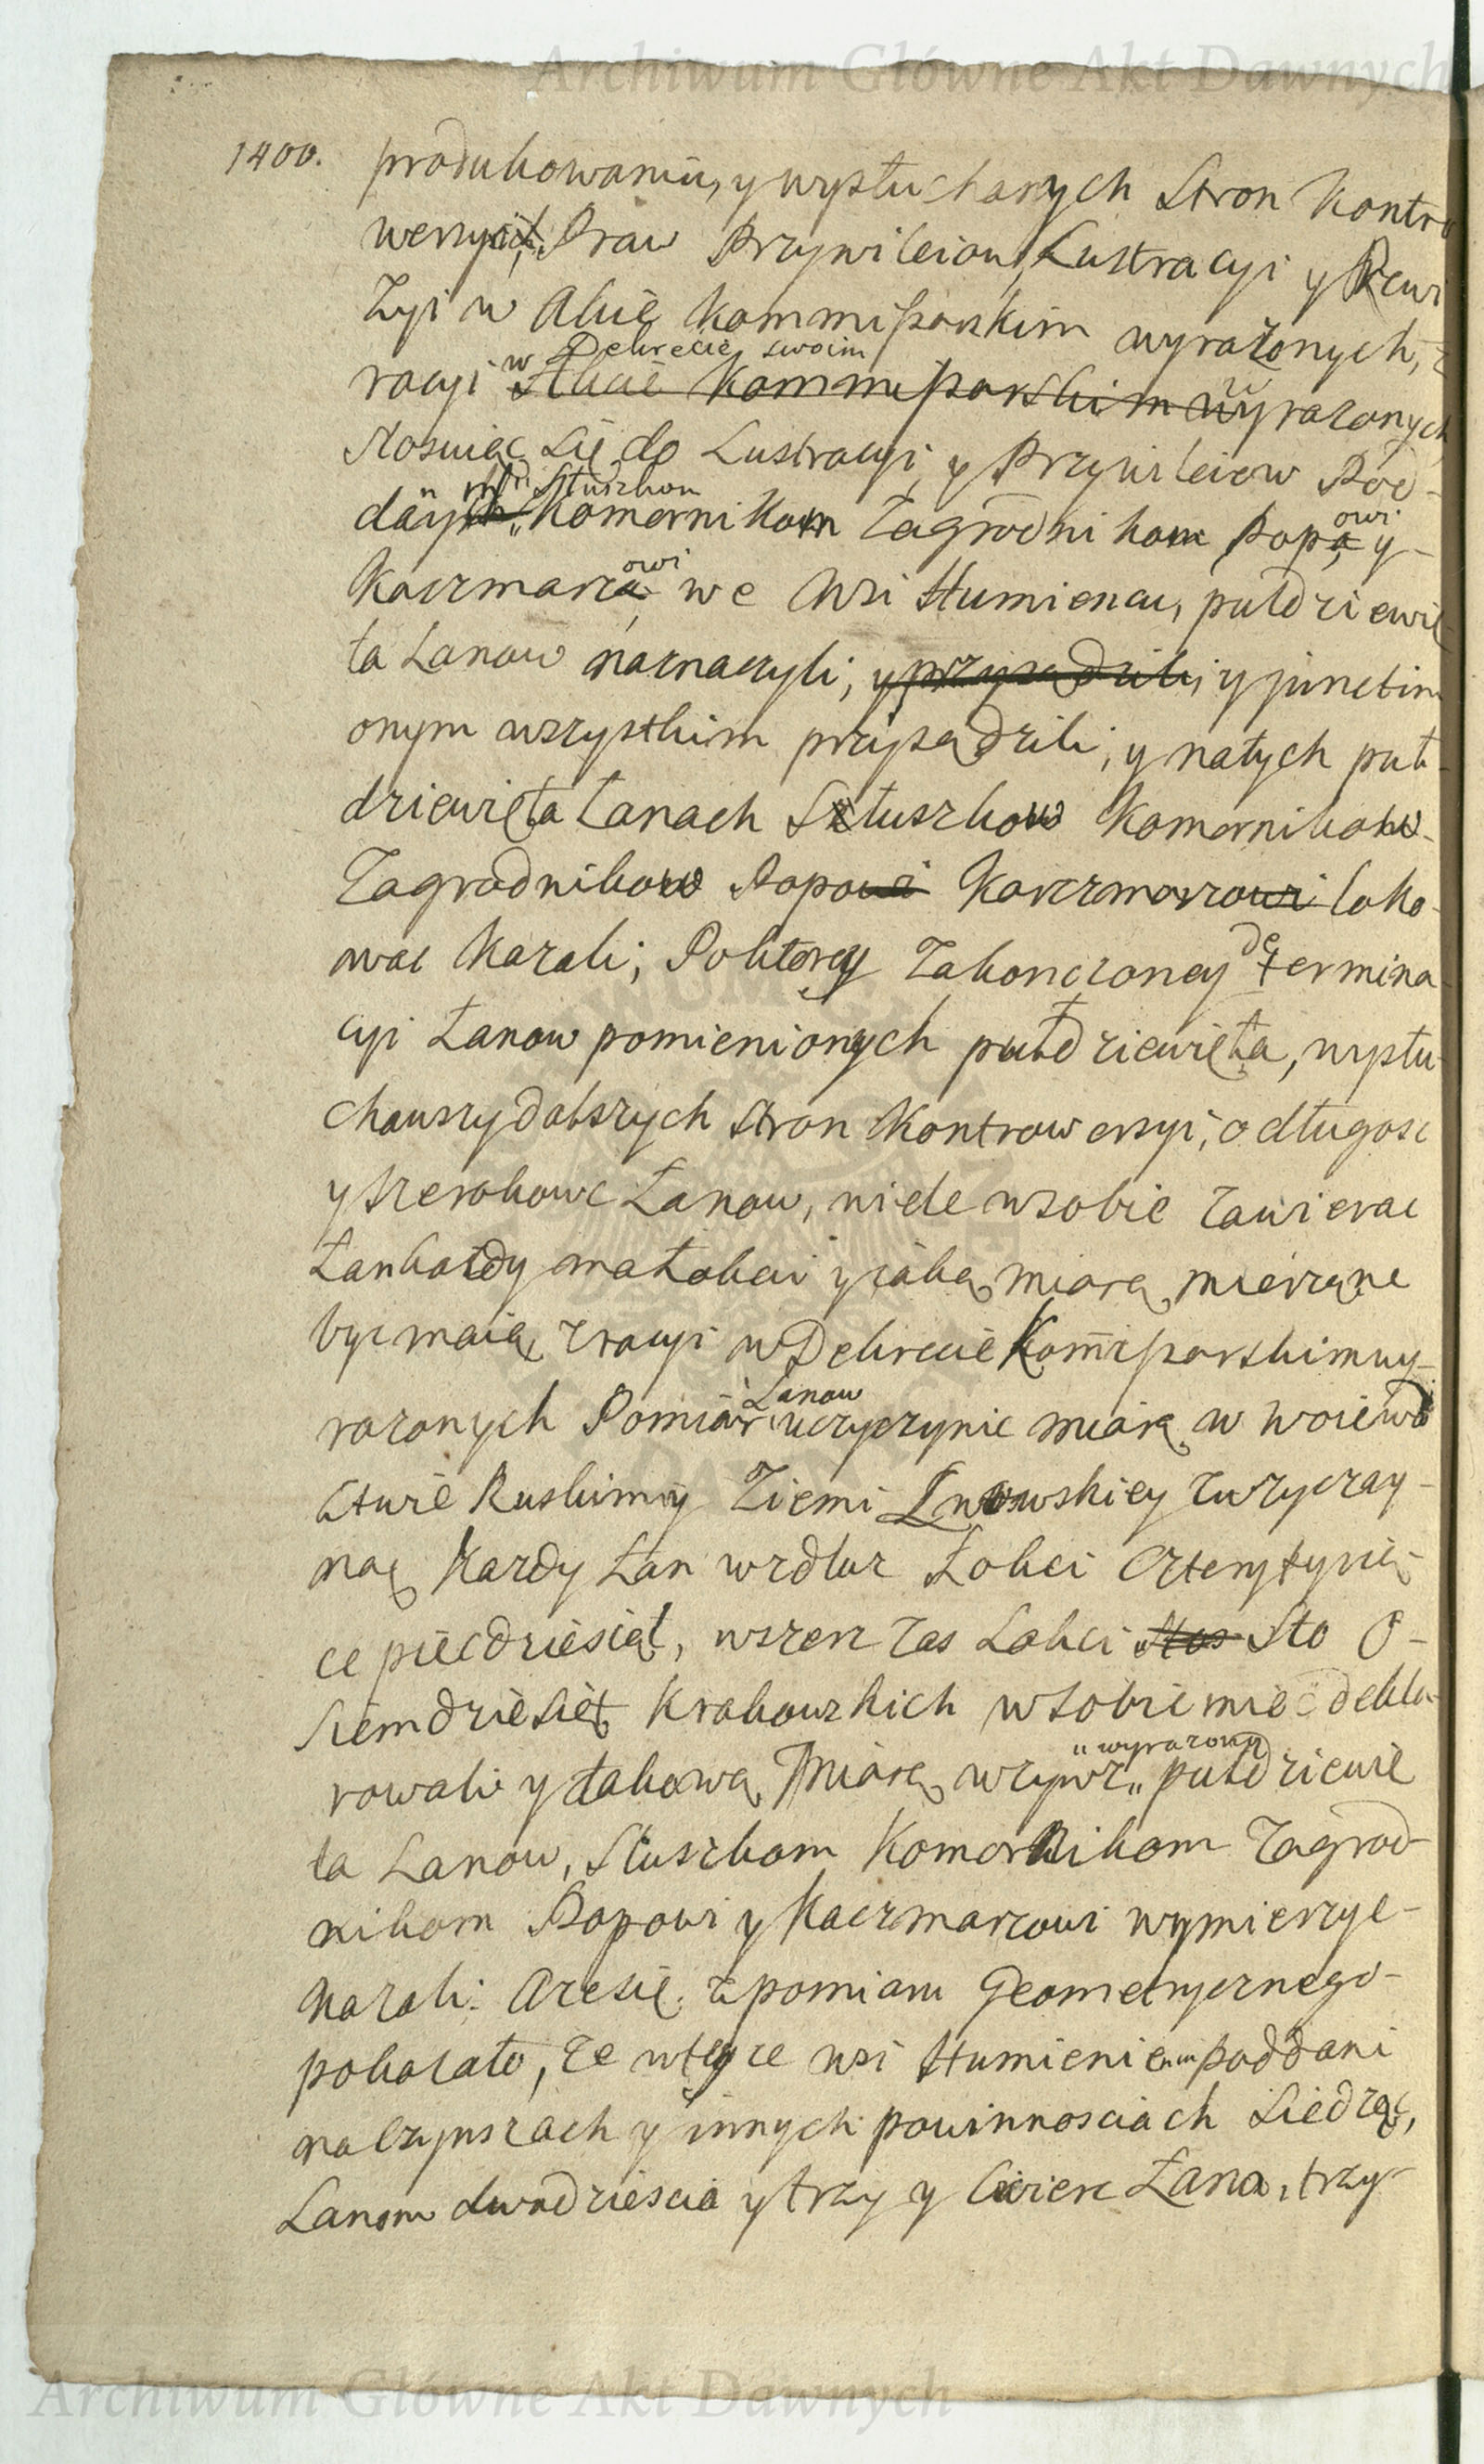 Archiwum Główne Akt Dawnych
1400. produkowaniu, y wysłuchanych Stron Kontro
wersyach, Praw Przywileiow, Lustracyi y Rewi
zyi w Akcie Kommissarskim wyrażonych, z
w Dekrecie swoim
racyi Akcie Kommissarskim wyrazonych
stosuiąc się do Lustracyi y Przywileiow Pod-
Słuszkom
danych Komornikom Zagrodnikom Popa y
owi
owi
Kaczmarza we Wsi Humiencu, pułdziewię
ta Łanow naznaczyli, y przysądzili, y junctim
onym wszystkim przysądzili, y natych puł-
dziewięta Łanach Słuszkow Komornikow
Zagrodnikow Popowi Karczmarzowi loko-
wac kazali; Po ktorey zakonczoney determina
cyi Łanow pomienionych pułdziewięta, wysłu
chawszy dalszych stron Kontrowersyi, o długosc
y szerokosc Łanow, wiele wsobie zawierac
Łan każdy ma Łokci y iaką miarą mierzone
byc maią z racyi w Dekrecie Kommissarskim wy-
Łanow
razonych Pomiar uczyczynic miarą w woiewo
dztwie Ruskim y Ziemi Lwowskiey zwyczay-
ną Kazdy Łan wzdłuz Łokci Cztery tysią-
ce piecdziesiąt, wszerz zas Łokci Stos Sto O-
siemdziesiąt Krakowskich wsobie miec dekla-
wyrazoną
rowali y takową miarą wzywz pułdziewię
ta Łanow, Słuszkom Komornikom Zagrod-
nikom Popowi y Kaczmarzowi wymierzyc-
kazali. A ze się z pomiaru Geometrycznego-
pokazało, ze wteyze wsi Humieniec poddani
na czynszach y innych powinnosciach siedzą,
Łanow dwadziescia y trzy y Cwierc Łana, trzy-
Archiwum Główne Akt Dawnych